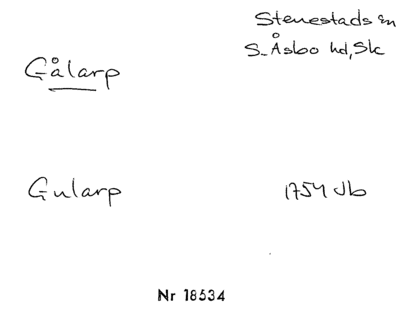 Stenestads sn
S. Åsbo hd, Sk
Gålarp
Gularp 1754 Jb
Nr 18534